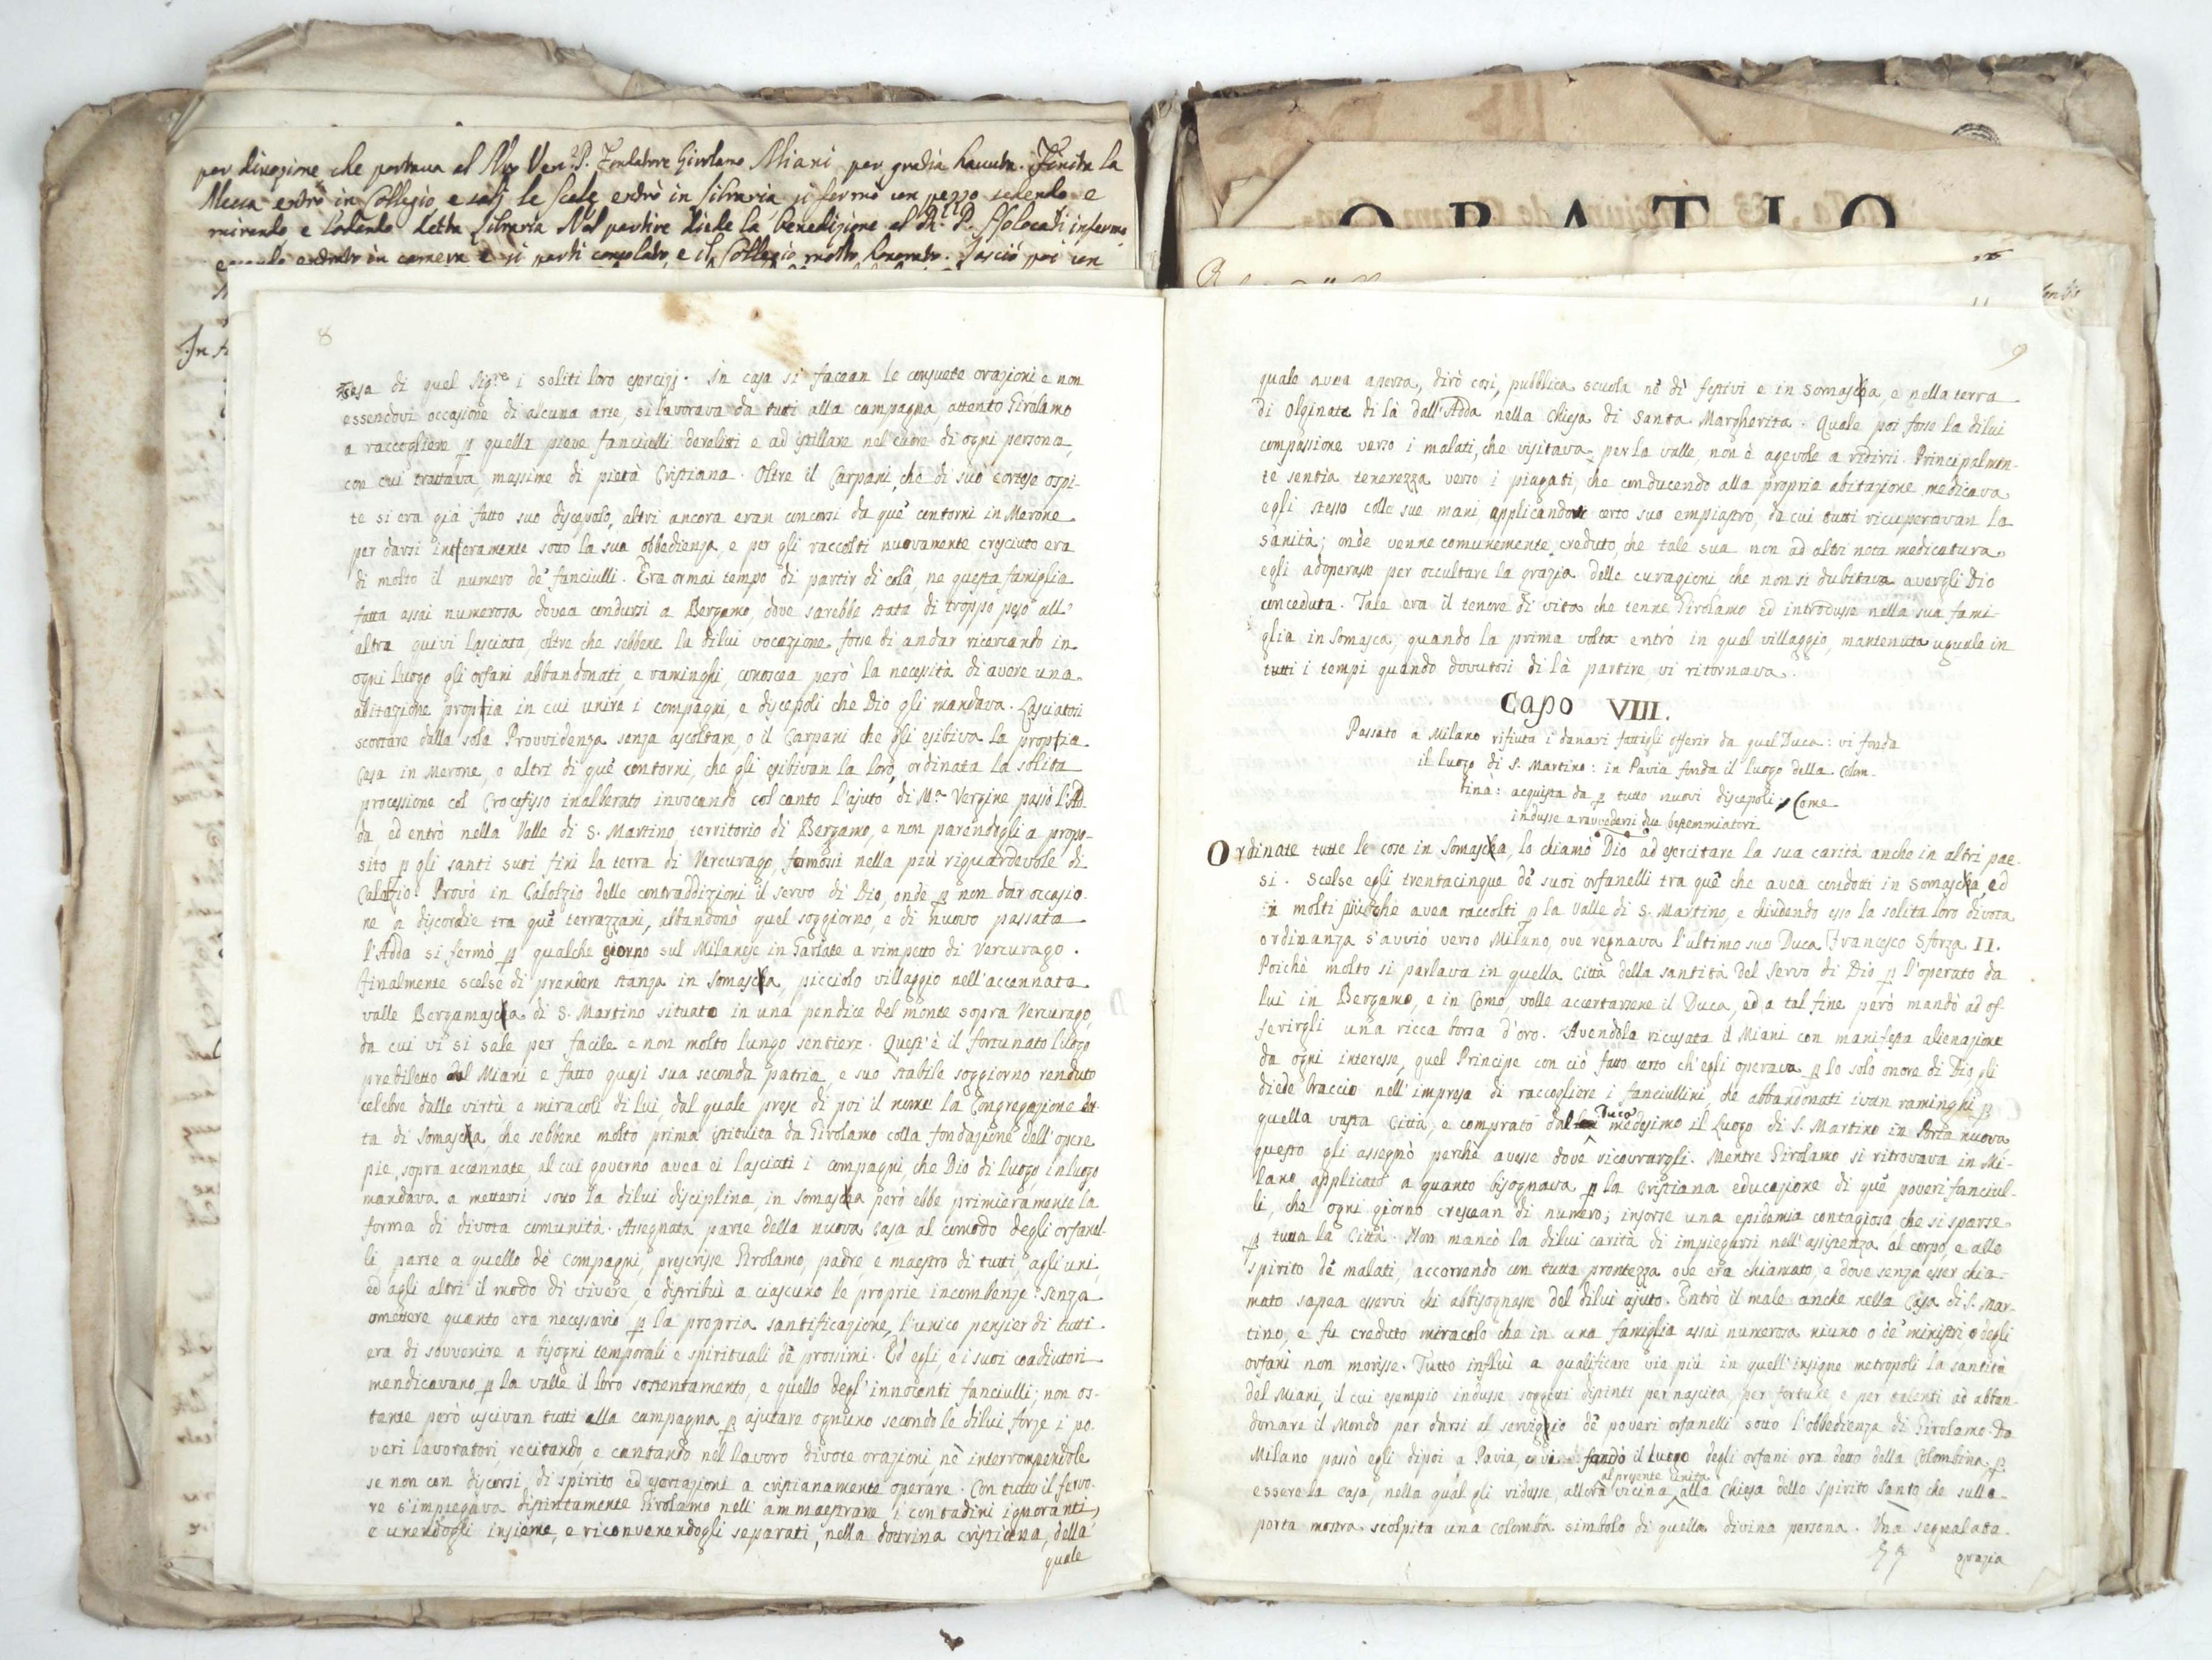 per divozione che portava al Vro Ven. P. Fondatore Girolamo Miani per gradia havuta. Finita la
Messa entrò in Collegio, e salì le scale entrò in libraria, si fermò un pezzo sedendo e
mirando e lodando detta Libraria. Nel partire diede la benedizione al P. infermo
entrato in camera e si partì consolato, e il Collegio molto honorato. Lasciò poi un
ORATIO
8
casa di quel Sigre i soliti loro esercizj. In casa si facean le consuete orazioni e non
essendovi occasione di alcuna arte, si lavorava da tutti alla campagna, attento Girolamo
a raccogliere p quella pieve fanciulli derelitti e ad istillare nel cuore di ogni persona,
con cui trattava, massime di pietà Cristiana. Oltre il Carpani, che di suo cortese ospi-
te si era già fatto suo discepolo, altri ancora eran concorsi da que' contorni in Merone
per darsi interamente sotto la sua obbedienza, e per gli raccolti nuovamente cresciuto era
di molto il numero de' fanciulli. Era ormai tempo di partir di colà, ne questa famiglia
fatta assai numerosa dovea condursi a Bergamo, dove sarebbe stata di troppo peso all'
altra quivi lasciata, oltre che sebbene la dilui vocazione fosse di andar ricercando in
ogni luogo gli orfani abbandonati, e raminghi, conoscea però la necessità di avere una
abitazione propria in cui unire i compagni, e discepoli che Dio gli mandava. Lasciatosi
scortare dalla sola Provvidenza senza ascoltare, o il Carpani che gli esibiva la propria
Casa in Merone, o altri di que' contorni, che gli esibivan la loro, ordinata la solita
processione col Crocefisso inalberato invocando col canto l'ajuto di Ma Vergine passò l'Ad-
da, ed entrò nella Valle di S. Martino territorio di Bergamo, e non parendogli a propo-
sito p gli santi suoi fini la terra di Vercurago, fermossi nella più riguardevole di
Calolzio. Provò in Calolzio delle contraddizioni il servo di Dio, onde p non dar occasio-
ne a discordie tra que' terrazzani, abbandonò quel soggiorno, e di nuovo passata
l'Adda si fermò p qualche giorno sul Milanese in Garlate a rimpetto di Vercurago.
Finalmente scelse di prendere stanza in Somasca, picciolo villaggio nell'accennata
valle Bergamasca di S. Martino situato in una pendice del monte sopra Vercurago,
da cui vi si sale per facile e non molto lungo sentiere. Quest'è il fortunato luogo
prediletto dal Miani e fatto quasi sua seconda patria, e suo stabile soggiorno renduto
celebre dalle virtù e miracoli di lui, dal quale prese di poi il nome la Congregazione det-
ta di Somasca, che sebbene molto prima istituita da Girolamo colla fondazione dell'opere
pie sopra accennate, al cui governo avea ei lasciati i compagni, che Dio di luogo in luogo
mandava a mettersi sotto la dilui disciplina, in Somasca però ebbe primieramente la
forma di divota comunità. Assegnata parte della nuova casa al comodo degli orfanel-
li, parte a quello de' compagni, prescrisse Girolamo, padre, e maestro di tutti, agli uni,
ed agli altri il modo di vivere, e distribuì a ciascuno le proprie incombenze. Senza
omettere quanto era necessario p la propria santificazione, l'unico pensier di tutti
era di sovvenire a bisogni temporali e spirituali de' prossimi. Ed egli, e i suoi coadiutori
mendicavano p la valle il loro sostentamento, e quello degl'innocenti fanciulli; non os-
tante però uscivan tutti alla campagna p ajutare ognuno secondo le dilui forze i po-
veri lavoratori, recitando, e cantando nel lavoro divote orazioni, nè interrompendole
se non con discorsi di spirito ed esortazioni a cristianamente operare. Con tutto il fervo-
re s'impiegava distintamente Girolamo nell'ammaestrare i contadini ignoranti,
e unendogli insieme, e riconvenendogli separati, nella dottrina cristiana, della
quale
9
quale avea aperta, dirò così, pubblica scuola ne' dì festivi e in Somasca, e nella terra
di Olginate di là dall'Adda nella Chiesa di Santa Margherita. Quale poi fosse la dilui
compassione verso i malati, che visitava per la valle, non è agevole a ridirsi. Principalmen-
te sentìa tenerezza verso i piagati, che conducendo alla propria abitazione medicava
egli stesso colle sue mani, applicandovi certo suo empiastro, da cui tutti ricuperavan la
sanità; onde venne comunemente creduto, che tale sua non ad altri nota medicatura
egli adoperasse per occultare la grazia delle curagioni che non si dubitava avergli Dio
conceduta. Tale era il tenore di vita che tenne Girolamo ed introdusse nella sua fami-
glia in Somasca, quando la prima volta entrò in quel villaggio, mantenuta uguale in
tutti i tempi quando dovutosi di là partire vi ritornava.
Capo VIII.
Passato a Milano rifiuta i danari fattigli offerir da quel Duca: vi fonda
il luogo di S. Martino: in Pavia fonda il luogo della Colom-
bina: acquista da p tutto nuovi discepoli, Come
indusse a ravvedersi due bestemmiatori
Ordinate tutte le cose in Somasca, lo chiamò Dio ad esercitare la sua carità anche in altri pae-
si. Scelse egli trentacinque de' suoi orfanelli tra que' che avea condotti in Somasca, ed
in molti più che avea raccolti p la Valle di S. Martino, e chiudendo esso la solita loro divota
ordinanza s'avviò verso Milano, ove regnava l'ultimo suo Duca Francesco Sforza II.
Poichè molto si parlava in quella Città della santità del Servo di Dio p l'operato da
lui in Bergamo, e in Como, volle accertarsene il Duca, ed a tal fine però mandò ad of-
ferirgli una ricca borsa d'oro. Avendola ricusata il Miani con manifesta alienazione
da ogni interesse, quel Principe con ciò fatto certo ch'egli operava p lo solo onore di Dio, gli
diede braccio nell'impresa di raccogliere i fanciullini, che abbandonati ivan raminghi p
quella vasta Città, e comprato dal Duca medesimo il Luogo di S. Martino in Porta nuova
questo gli assegnò perchè avesse dove ricovrargli. Mentre Girolamo si ritrovava in Mi-
lano applicato a quanto bisognava p la Cristiana educazione di que' poveri fanciul-
li, che ogni giorno crescean di numero; insorse una epidemia contagiosa che si sparse
p tutta la Città. Non mancò la dilui carità di impiegarsi nell'assistenza al corpo, e allo
spirito de' malati, accorrendo con tutta prontezza ove era chiamato, e dove senza esser chia-
mato sapea esservi chi abbisognasse del dilui ajuto. Entrò il male anche nella Casa di S. Mar-
tino, e fu creduto miracolo che in una famiglia assai numerosa niuno o de' ministri o degli
orfani non morisse. Tutto influì a qualificare vie più in quell'insigne metropoli la santità
del Miani, il cui esempio indusse soggetti distinti per nascita, per fortune e per talenti ad abban-
donare il Mondo per darsi al servigio de' poveri orfanelli sotto l'obbedienza di Girolamo. Da
Milano passò egli dipoi a Pavia, ove fondò il luogo degli orfani ora detto della Colombina, p
essere la casa, nella qual gli ridusse, allora vicina, al presente unita alla Chiesa dello Spirito Santo, che sulla
porta mostra scolpita una colomba simbolo di quella divina persona. Una segnalata
grazia